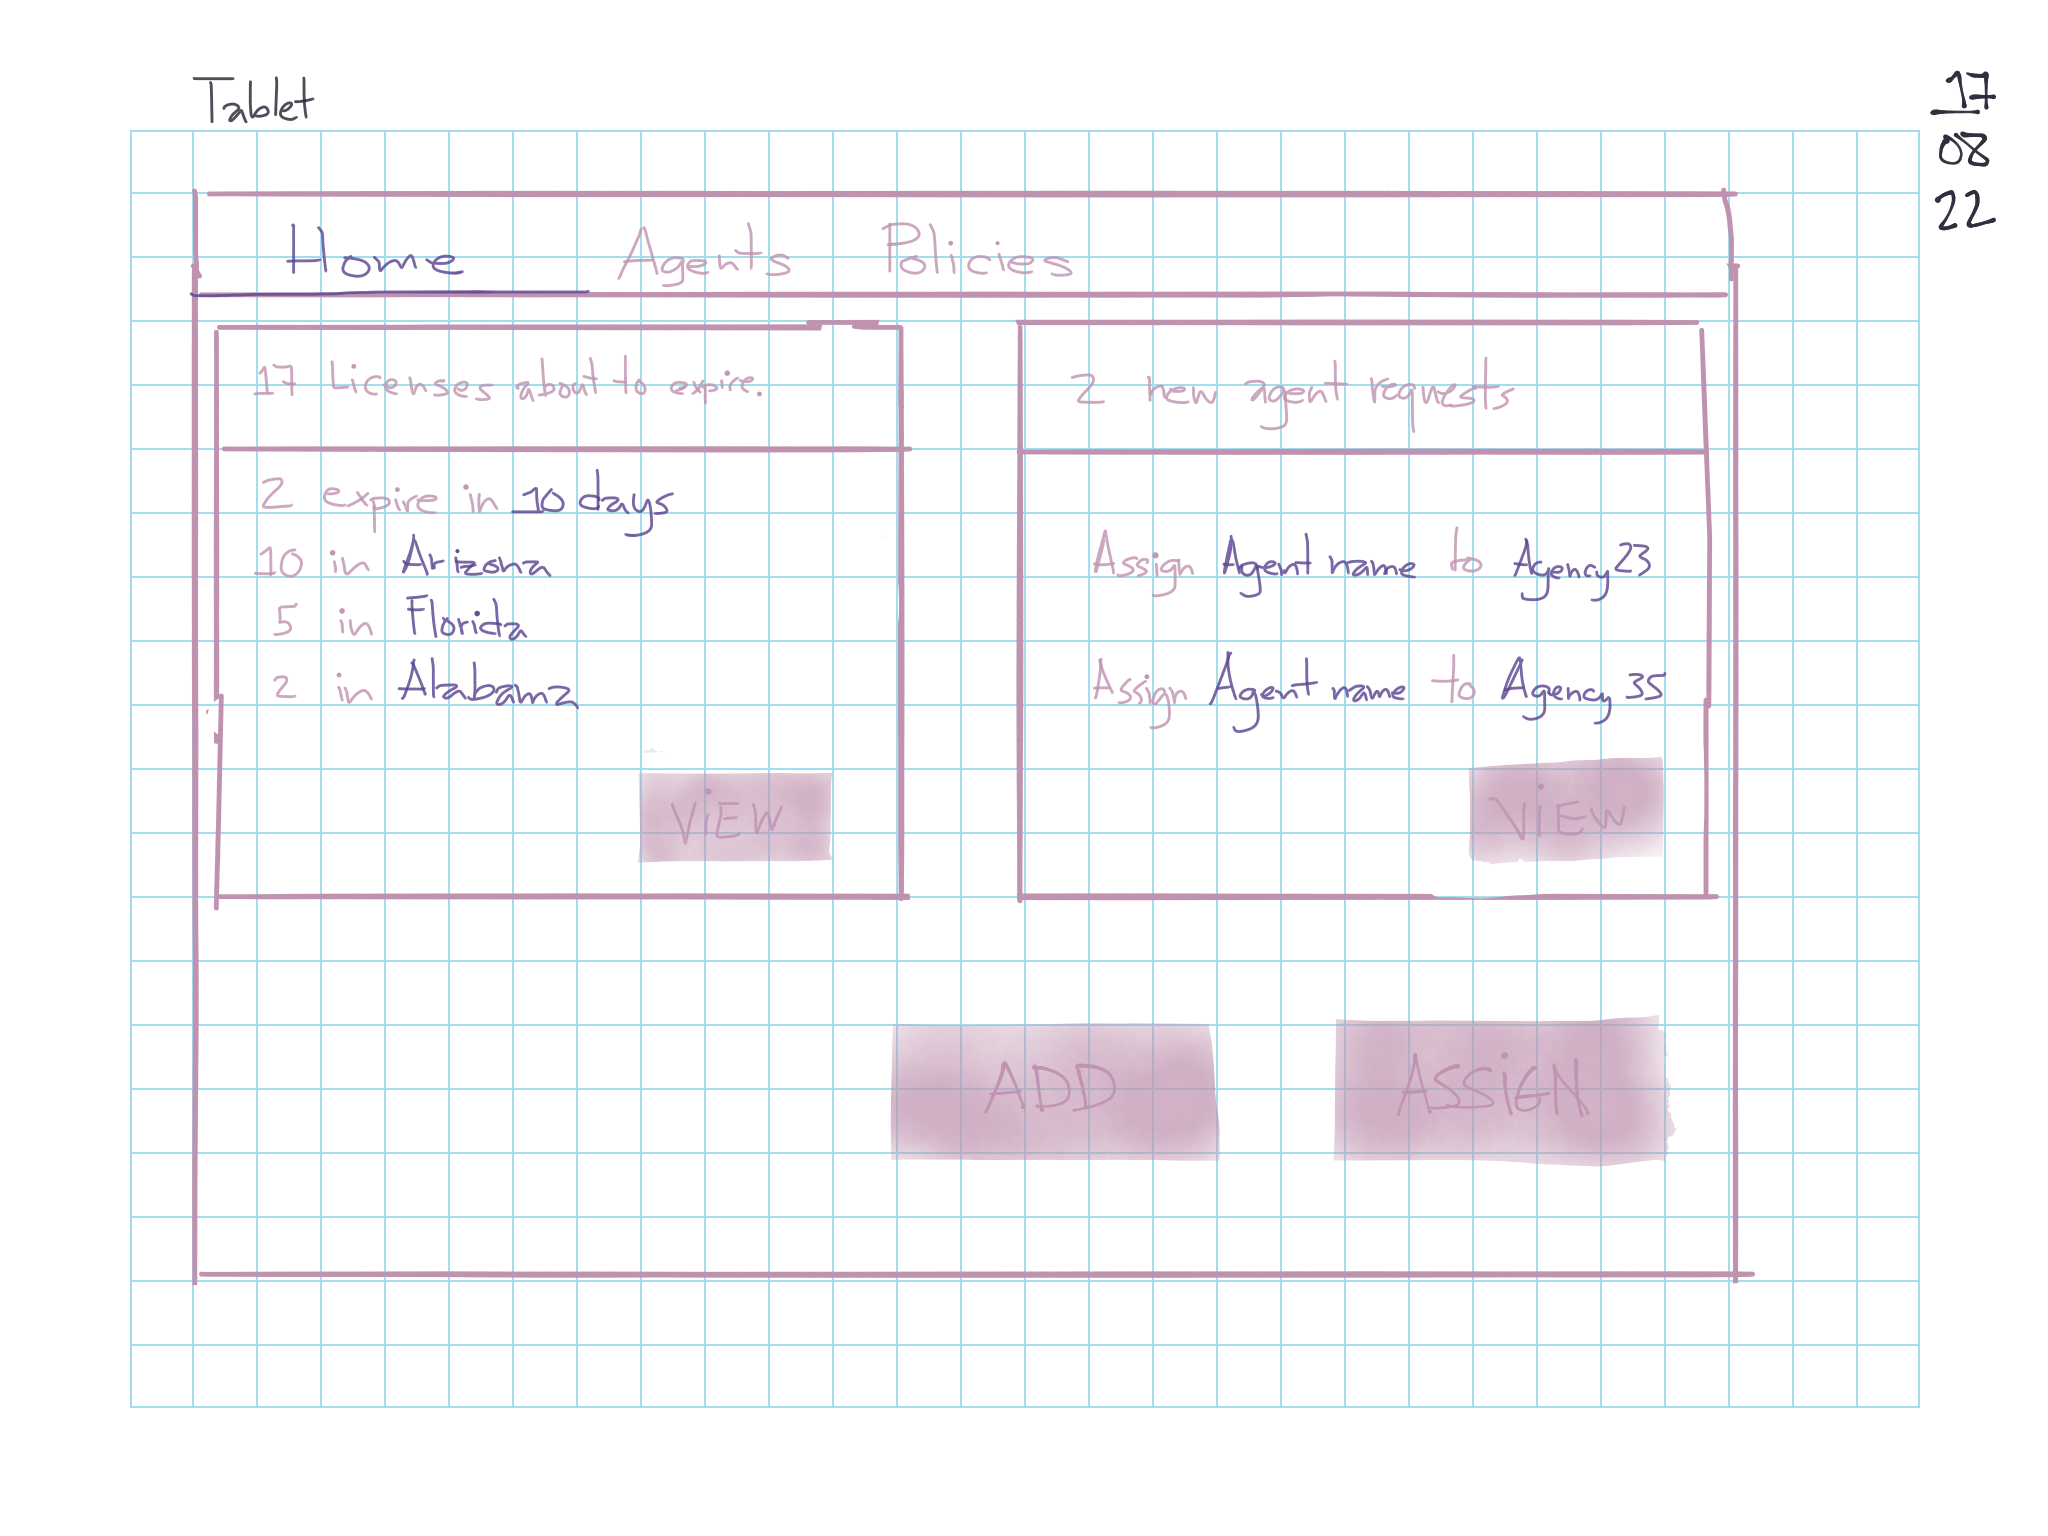 Tablet
17
08
22
Home Agents Policies
17 Licenses about to expire.
2 expire in 10 days
10 in Arizona
5 in Florida
2 in Alabama
VIEW
2 new agent requests
Assign Agent name to Agency 23
Assign Agent name to Agency 35
VIEW
ADD
ASSIGN